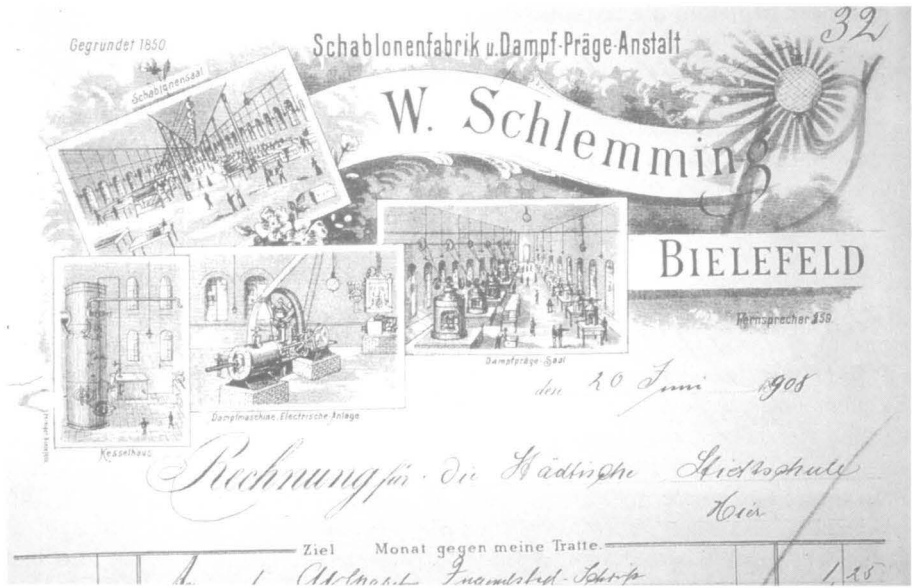 32
Gegründet 1850.
Schablonenfabrik u. Dampf-Präge-Anstalt
Schablonensaal
W. Schlemming
BIELEFELD
Fernsprecher 259.
Dampfpräge-Saal
Dampfmaschine, Electrische Anlage
Kesselhaus
den 20 Juni 1908
Rechnung für die Städtische
Hier
Ziel Monat gegen meine Tratte.
1 1 25